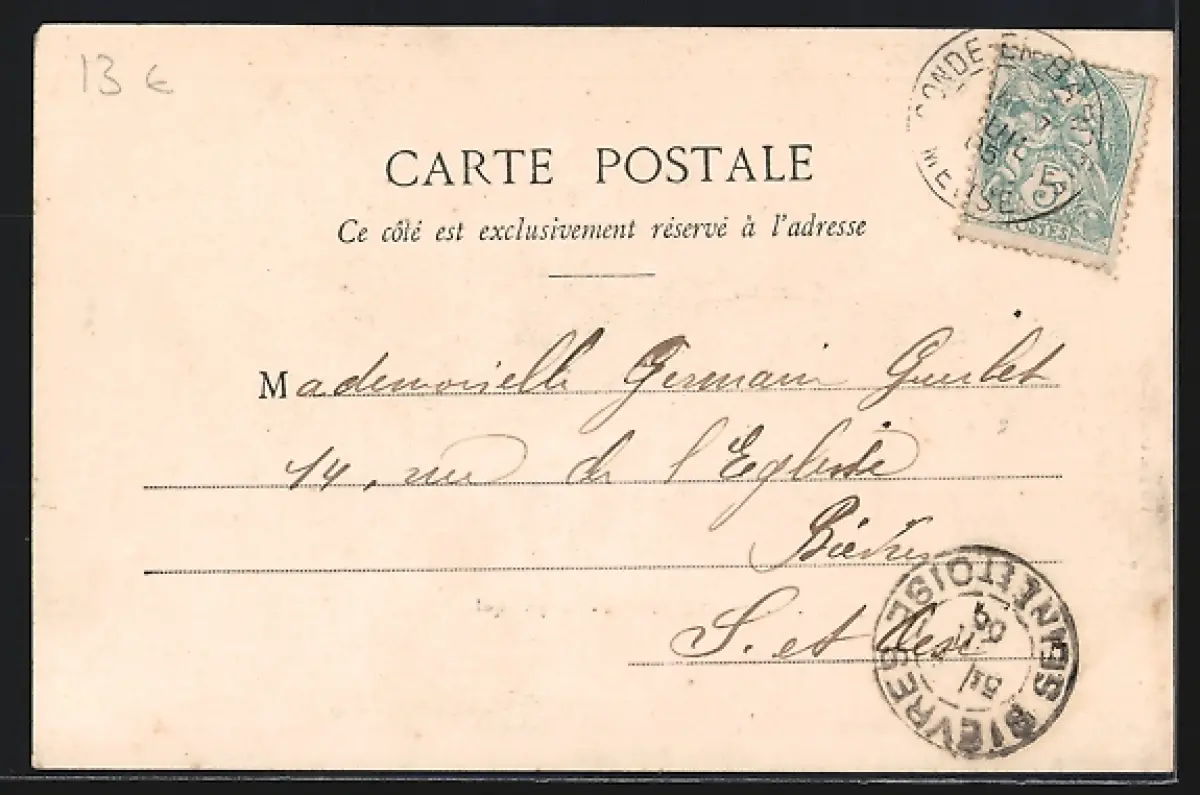 13 €
CONDE EN BARROIS
MEUSE
5
POSTES
CARTE POSTALE
Ce côté est exclusivement réservé à l'adresse
Mademoiselle Germain
14, rue de l'Eglise
Bièvres
S. et Oise
BIEVRES SEINE ET OISE